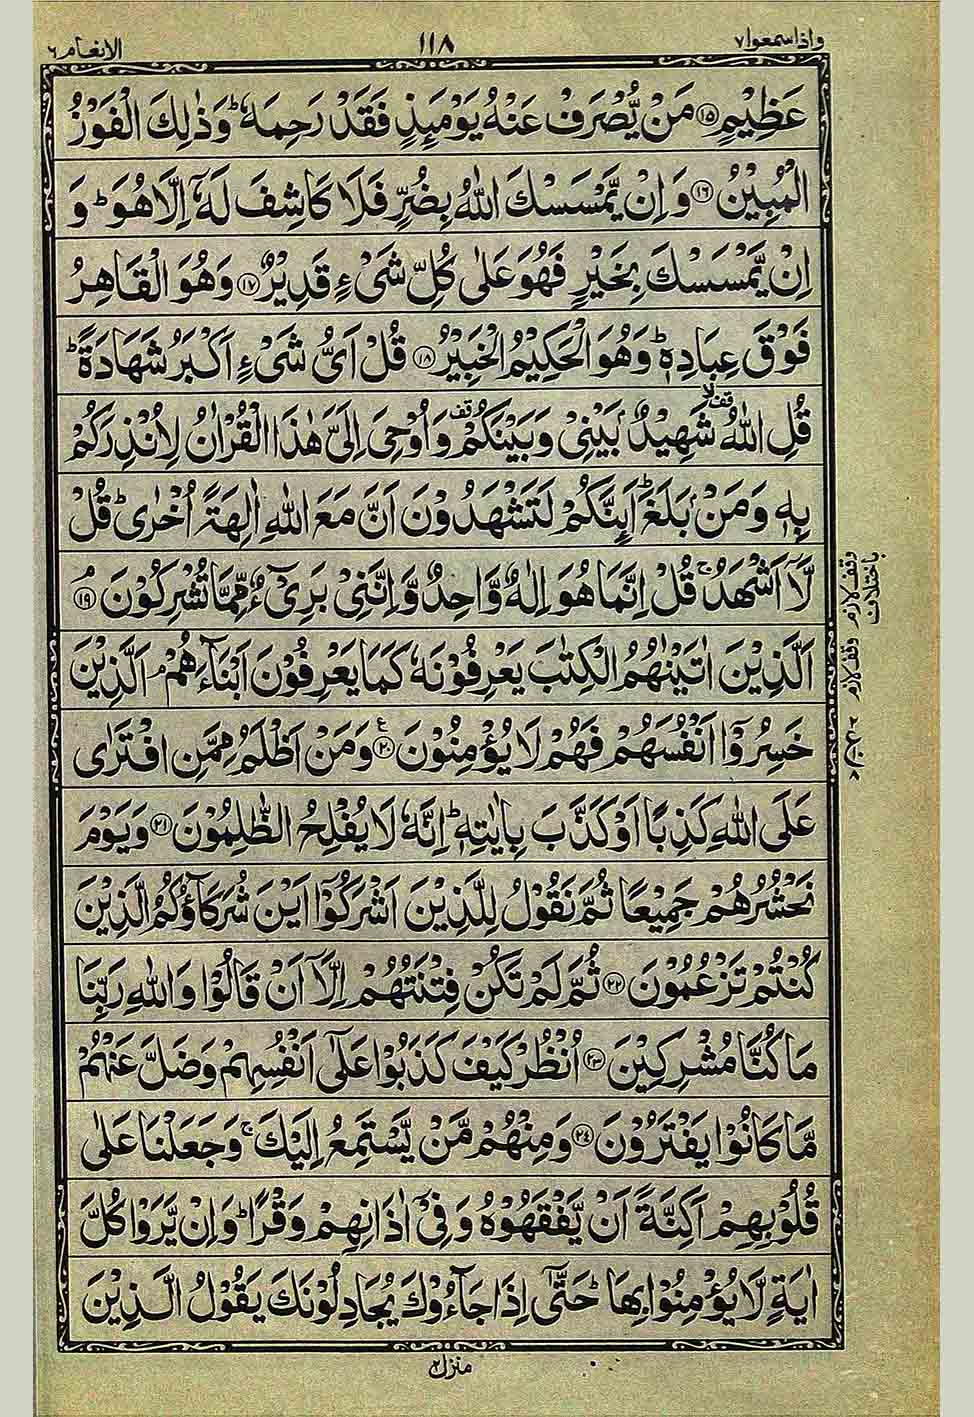 واذاسمعوا٧
١١٨
الانعام٦
عَظِيْمٍ ۝١٥ مَنْ يُّصْرَفْ عَنْهُ يَوْمَىِٕذٍ فَقَدْ رَحِمَهٗ ؕ وَذٰلِكَ الْفَوْزُ
الْمُبِيْنُ ۝١٦ وَ اِنْ يَّمْسَسْكَ اللّٰهُ بِضُرٍّ فَلَا كَاشِفَ لَهٗۤ اِلَّا هُوَ ؕ وَ
اِنْ يَّمْسَسْكَ بِخَيْرٍ فَهُوَ عَلٰى كُلِّ شَىْءٍ قَدِيْرٌ ۝١٧ وَهُوَ الْقَاهِرُ
فَوْقَ عِبَادِهٖ ؕ وَهُوَ الْحَكِيْمُ الْخَبِيْرُ ۝١٨ قُلْ اَىُّ شَىْءٍ اَكْبَرُ شَهَادَةً ؕ
قُلِ اللّٰهُ قف لا شَهِيْدٌۢ بَيْنِىْ وَبَيْنَكُمْ قف وَاُوْحِىَ اِلَىَّ هٰذَا الْقُرْاٰنُ لِاُنْذِرَكُمْ
بِهٖ وَمَنْۢ بَلَغَ ؕ اَىِٕنَّكُمْ لَتَشْهَدُوْنَ اَنَّ مَعَ اللّٰهِ اٰلِهَةً اُخْرٰى ؕ قُلْ
لَّاۤ اَشْهَدُ ۚ قُلْ اِنَّمَا هُوَ اِلٰهٌ وَّاحِدٌ وَّاِنَّنِىْ بَرِىْٓءٌ مِّمَّا تُشْرِكُوْنَ ۘ ۝١٩
اَلَّذِيْنَ اٰتَيْنٰهُمُ الْكِتٰبَ يَعْرِفُوْنَهٗ كَمَا يَعْرِفُوْنَ اَبْنَآءَهُمْ ۘ اَلَّذِيْنَ
خَسِرُوْۤا اَنْفُسَهُمْ فَهُمْ لَا يُؤْمِنُوْنَ ۝٢٠ ع وَمَنْ اَظْلَمُ مِمَّنِ افْتَرٰى
عَلَى اللّٰهِ كَذِبًا اَوْ كَذَّبَ بِاٰيٰتِهٖ ؕ اِنَّهٗ لَا يُفْلِحُ الظّٰلِمُوْنَ ۝٢١ وَيَوْمَ
نَحْشُرُهُمْ جَمِيْعًا ثُمَّ نَقُوْلُ لِلَّذِيْنَ اَشْرَكُوْۤا اَيْنَ شُرَكَآؤُكُمُ الَّذِيْنَ
كُنْتُمْ تَزْعُمُوْنَ ۝٢٢ ثُمَّ لَمْ تَكُنْ فِتْنَتُهُمْ اِلَّاۤ اَنْ قَالُوْا وَاللّٰهِ رَبِّنَا
مَا كُنَّا مُشْرِكِيْنَ ۝٢٣ اُنْظُرْ كَيْفَ كَذَبُوْا عَلٰۤى اَنْفُسِهِمْ وَضَلَّ عَنْهُمْ
مَّا كَانُوْا يَفْتَرُوْنَ ۝٢٤ وَمِنْهُمْ مَّنْ يَّسْتَمِعُ اِلَيْكَ ۚ وَجَعَلْنَا عَلٰى
قُلُوْبِهِمْ اَكِنَّةً اَنْ يَّفْقَهُوْهُ وَفِىْۤ اٰذَانِهِمْ وَقْرًا ؕ وَاِنْ يَّرَوْا كُلَّ
اٰيَةٍ لَّا يُؤْمِنُوْا بِهَا ؕ حَتّٰۤى اِذَا جَآءُوْكَ يُجَادِلُوْنَكَ يَقُوْلُ الَّذِيْنَ
وقف لازم
باختلاف
وقف لازم
منزل٢